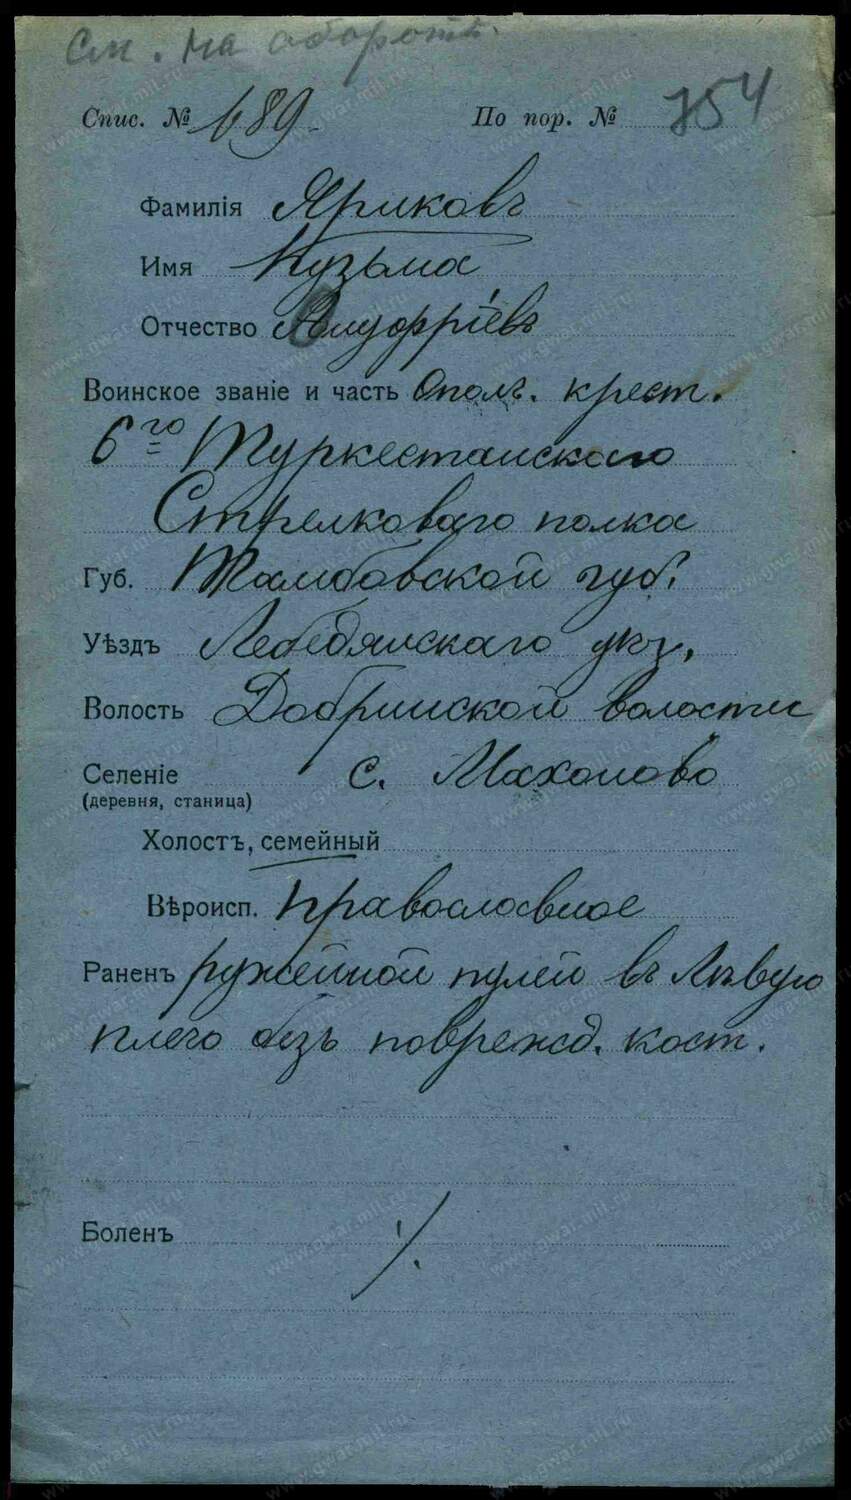 См. на оборотѣ.
Спис. № 689 По пор. № 754
Фамилія Яриковъ
Имя Кузьма
Отчество Онуфріевъ
Воинское званіе и часть Ополч. крест.
6го Туркестанскаго
Стрелковаго полка
Губ. Тамбовской губ.
Уѣздъ Лебедянскаго уѣз.
Волость Добринской волости
Селеніе с. Махоново
(деревня, станица)
Холостъ, семейный
Вѣроисп. православное
Раненъ ружейной пулей въ лѣвую
плечо безъ поврежд. кост.
Боленъ ·/.